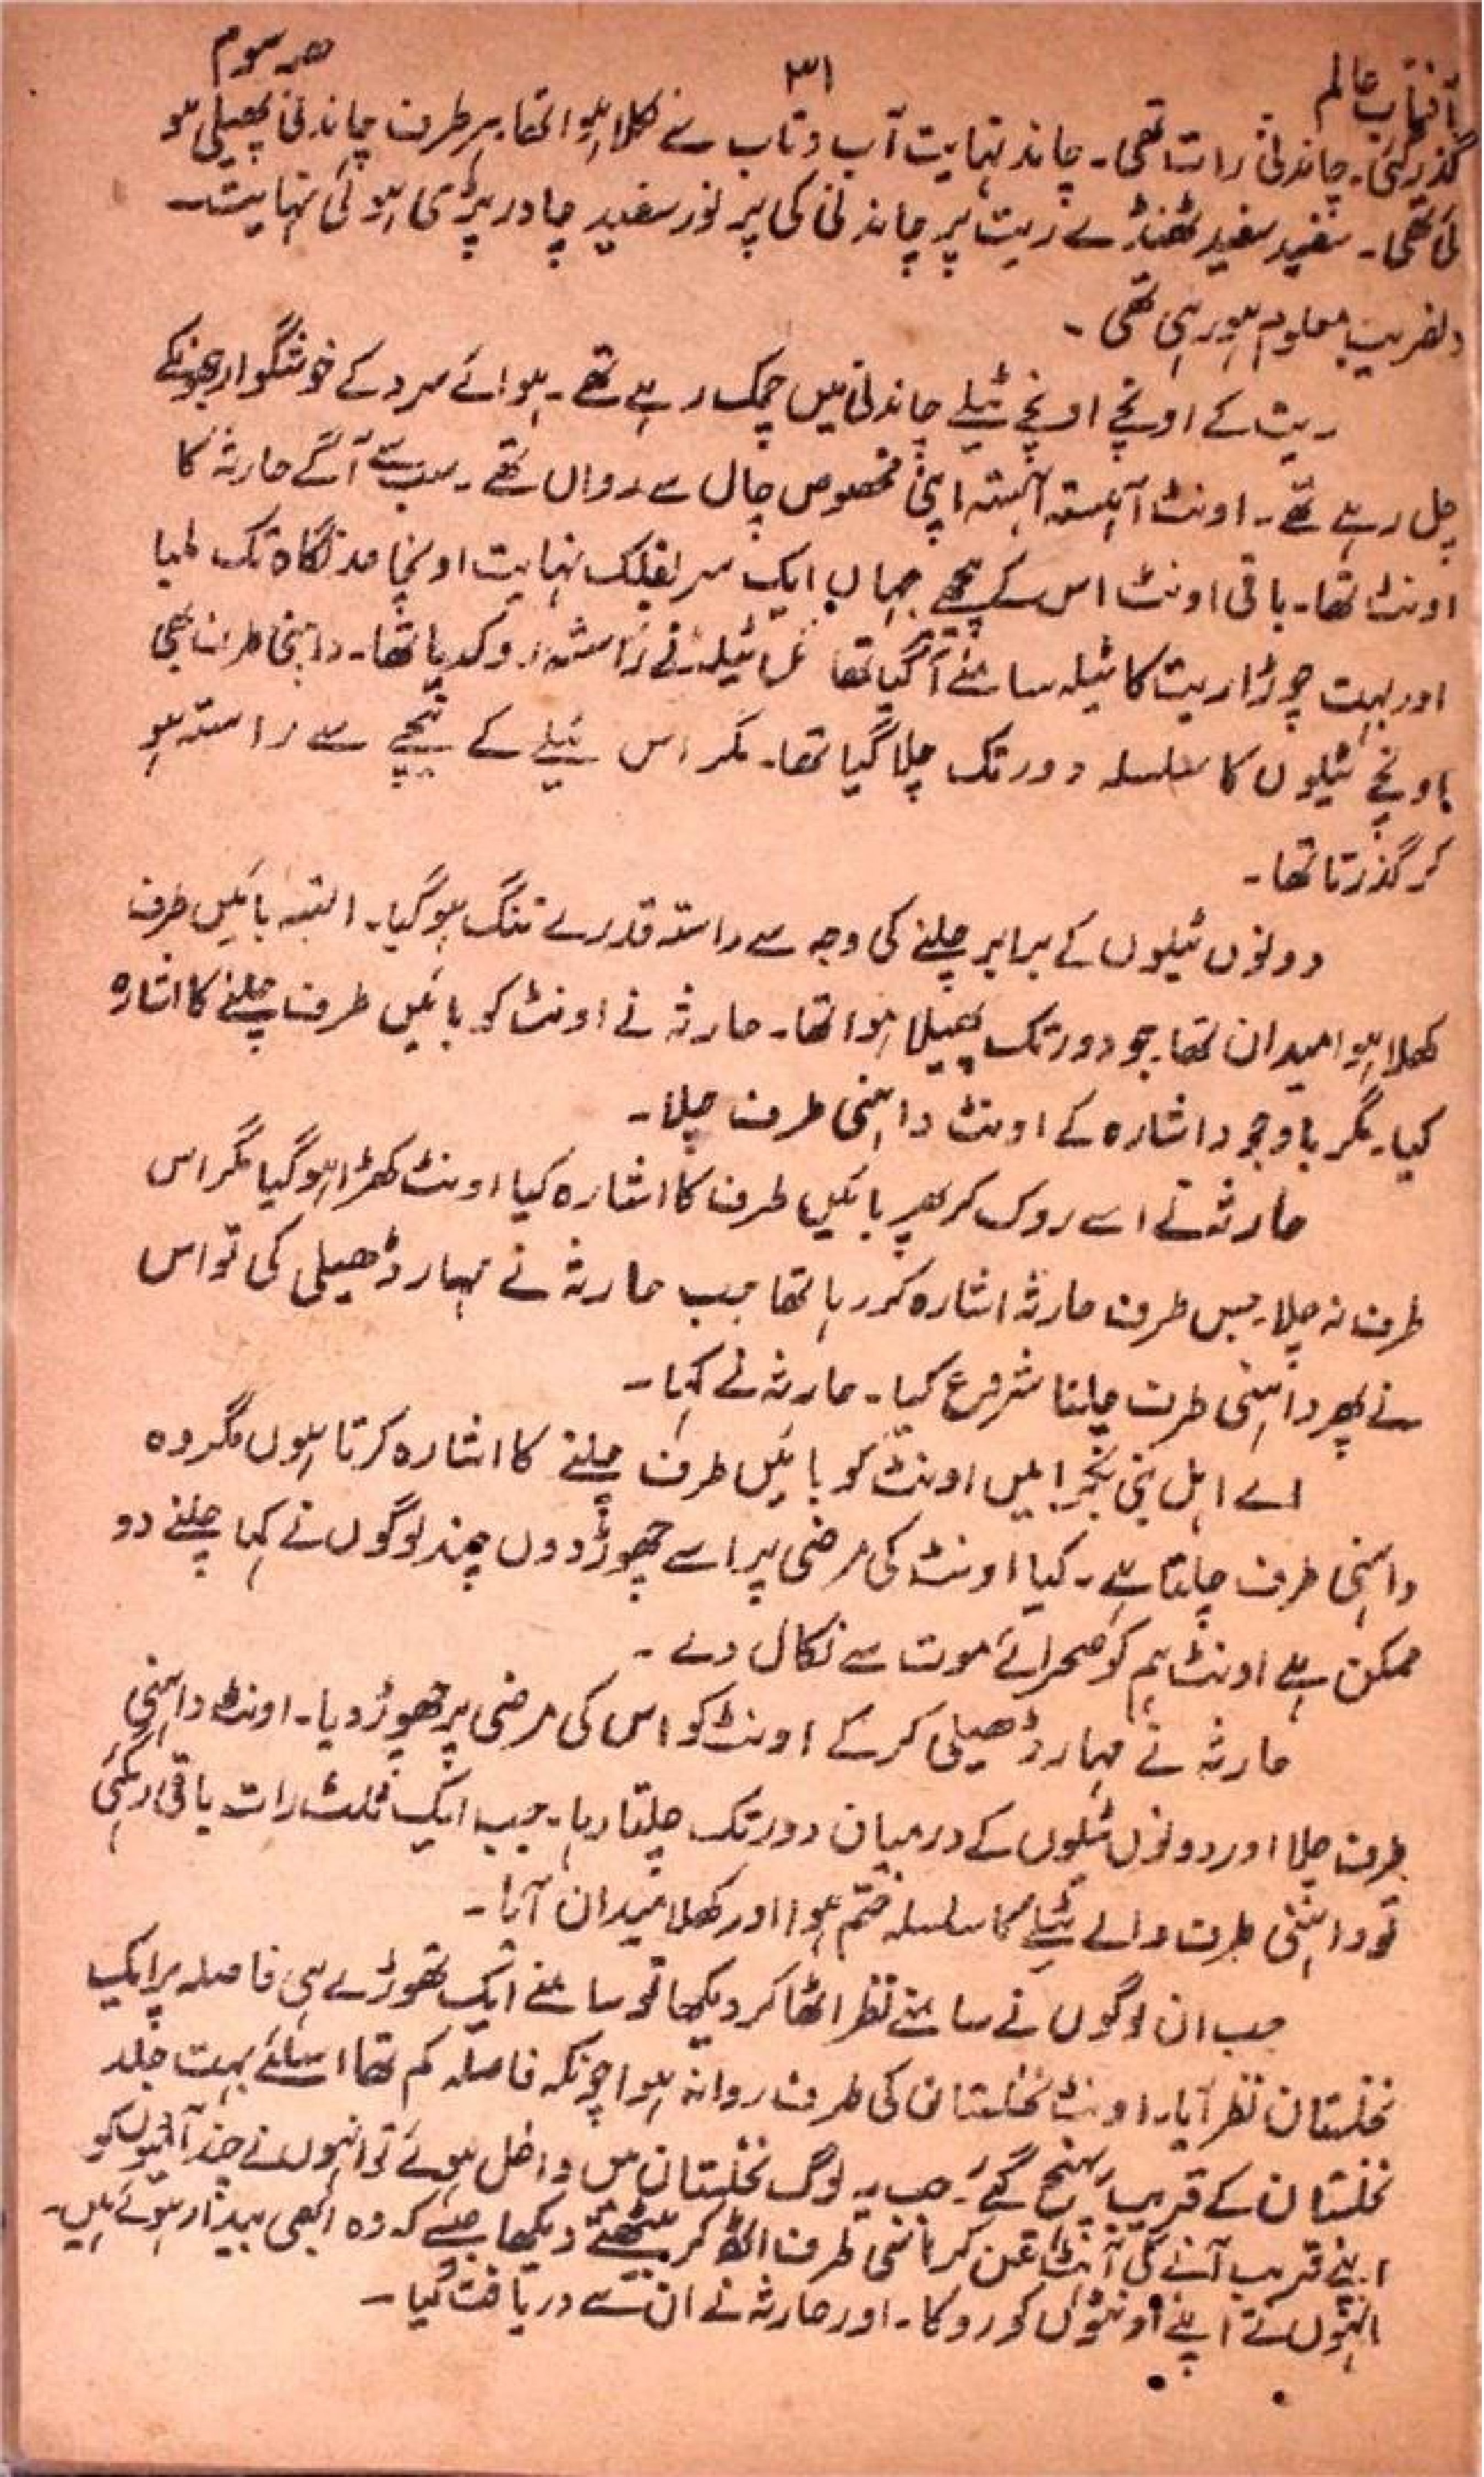 آفتاب عالم ۳۱ حصہ سوم
گذر گئی۔ چاندنی رات تھی۔ چاند نہایت آب و تاب سے نکلا ہوا تھا۔ ہر طرف چاندنی پھیلی ہو
ئی تھی۔ سفید سفید ٹھنڈے ریت پر چاندنی کی پر نور سفید چادر پڑی ہوئی نہایت
دلفریب معلوم ہو رہی تھی۔
ریت کے اونچے اونچے ٹیلے چاندنی میں چمک رہے تھے۔ ہوائے سرد کے خوشگوار جھونکے
چل رہے تھے۔ اونٹ آہستہ آہستہ اپنی مخصوص چال سے رواں تھے۔ سب سے آگے حارثہ کا
اونٹ تھا۔ باقی اونٹ اس کے پیچھے جہاں ایک سر بفلک نہایت اونچا حد نگاہ تک لمبا
اور بہت چوڑا ریت کا ٹیلہ سامنے آ گیا تھا ٹیلہ نے راستہ روک دیا تھا۔ داہنی طرف بھی
اونچے ٹیلوں کا سلسلہ دور تک چلا گیا تھا۔ مگر اس ٹیلے کے نیچے سے راستہ ہو
کر گذرتا تھا۔
دونوں ٹیلوں کے برابر چلنے کی وجہ سے راستہ قدرے تنگ ہو گیا۔ البتہ بائیں طرف
کھلا ہوا میدان تھا۔ جو دور تک پھیلا ہوا تھا۔ حارثہ نے اونٹ کو بائیں طرف چلنے کا اشارہ
کیا۔ مگر باوجود اشارہ کے اونٹ داہنی طرف چلا۔
حارثہ نے اسے روک کر پھر بائیں طرف کا اشارہ کیا اونٹ کھڑا ہو گیا مگر اس
طرف نہ چلا۔ جس طرف حارثہ اشارہ کر رہا تھا جب حارثہ نے مہار ڈھیلی کی تو اس
نے پھر داہنی طرف چلنا شروع کیا۔ حارثہ نے کہا۔
اے اہل بنی بحر! میں اونٹ کو بائیں طرف چلنے کا اشارہ کرتا ہوں مگر وہ
داہنی طرف چلتا ہے۔ کیا اونٹ کی مرضی پر اسے چھوڑ دوں چند لوگوں نے کہا چلنے دو
ممکن ہے اونٹ ہم کو صحرائے موت سے نکال دے۔
حارثہ نے مہار ڈھیلی کر کے اونٹ کو اس کی مرضی پر چھوڑ دیا۔ اونٹ داہنی
طرف چلا اور دونوں ٹیلوں کے درمیان دور تک چلتا رہا۔ جب ایک ثلث رات باقی رہ گئی
تو داہنی طرف والے ٹیلے کا سلسلہ ختم ہوا اور کھلا میدان آیا۔
جب ان لوگوں نے سامنے نظر اٹھا کر دیکھا تو سامنے ایک تھوڑے ہی فاصلہ پر ایک
نخلستان نظر آیا۔ اونٹ نخلستان کی طرف روانہ ہوا چونکہ فاصلہ کم تھا اسلئے بہت جلد
نخلستان کے قریب پہنچ گئے۔ جب یہ لوگ نخلستان میں داخل ہوئے تو انہوں نے چند آدمیوں کو
اپنے قریب آنے کی کر طرف اٹھ کر بیٹھتے دیکھا جیسے کہ وہ ابھی بیدار ہوئے ہیں۔
انہوں نے اپنے اونٹوں کو روکا۔ اور حارثہ نے ان سے دریافت کیا۔